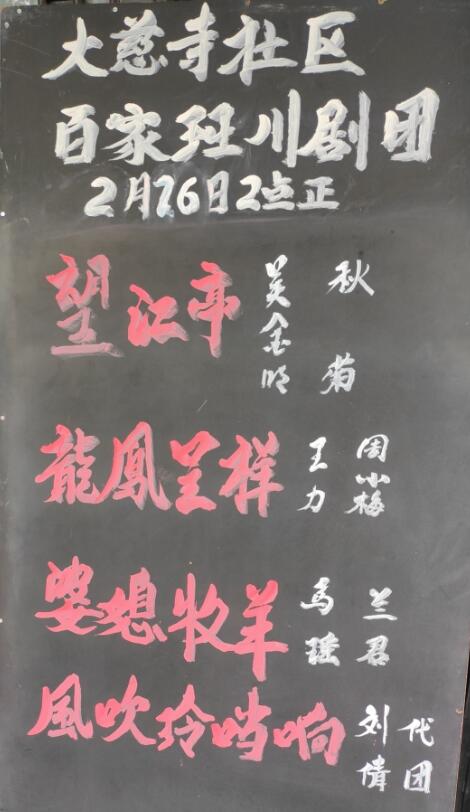 大慈寺社区
百家班川剧团
2月26日2点正
望江亭 吴金明 秋菊
龍鳳呈祥 王力 周小梅
婆媳牧羊 马瑶 兰君
風吹玲哨响 刘倩 代团